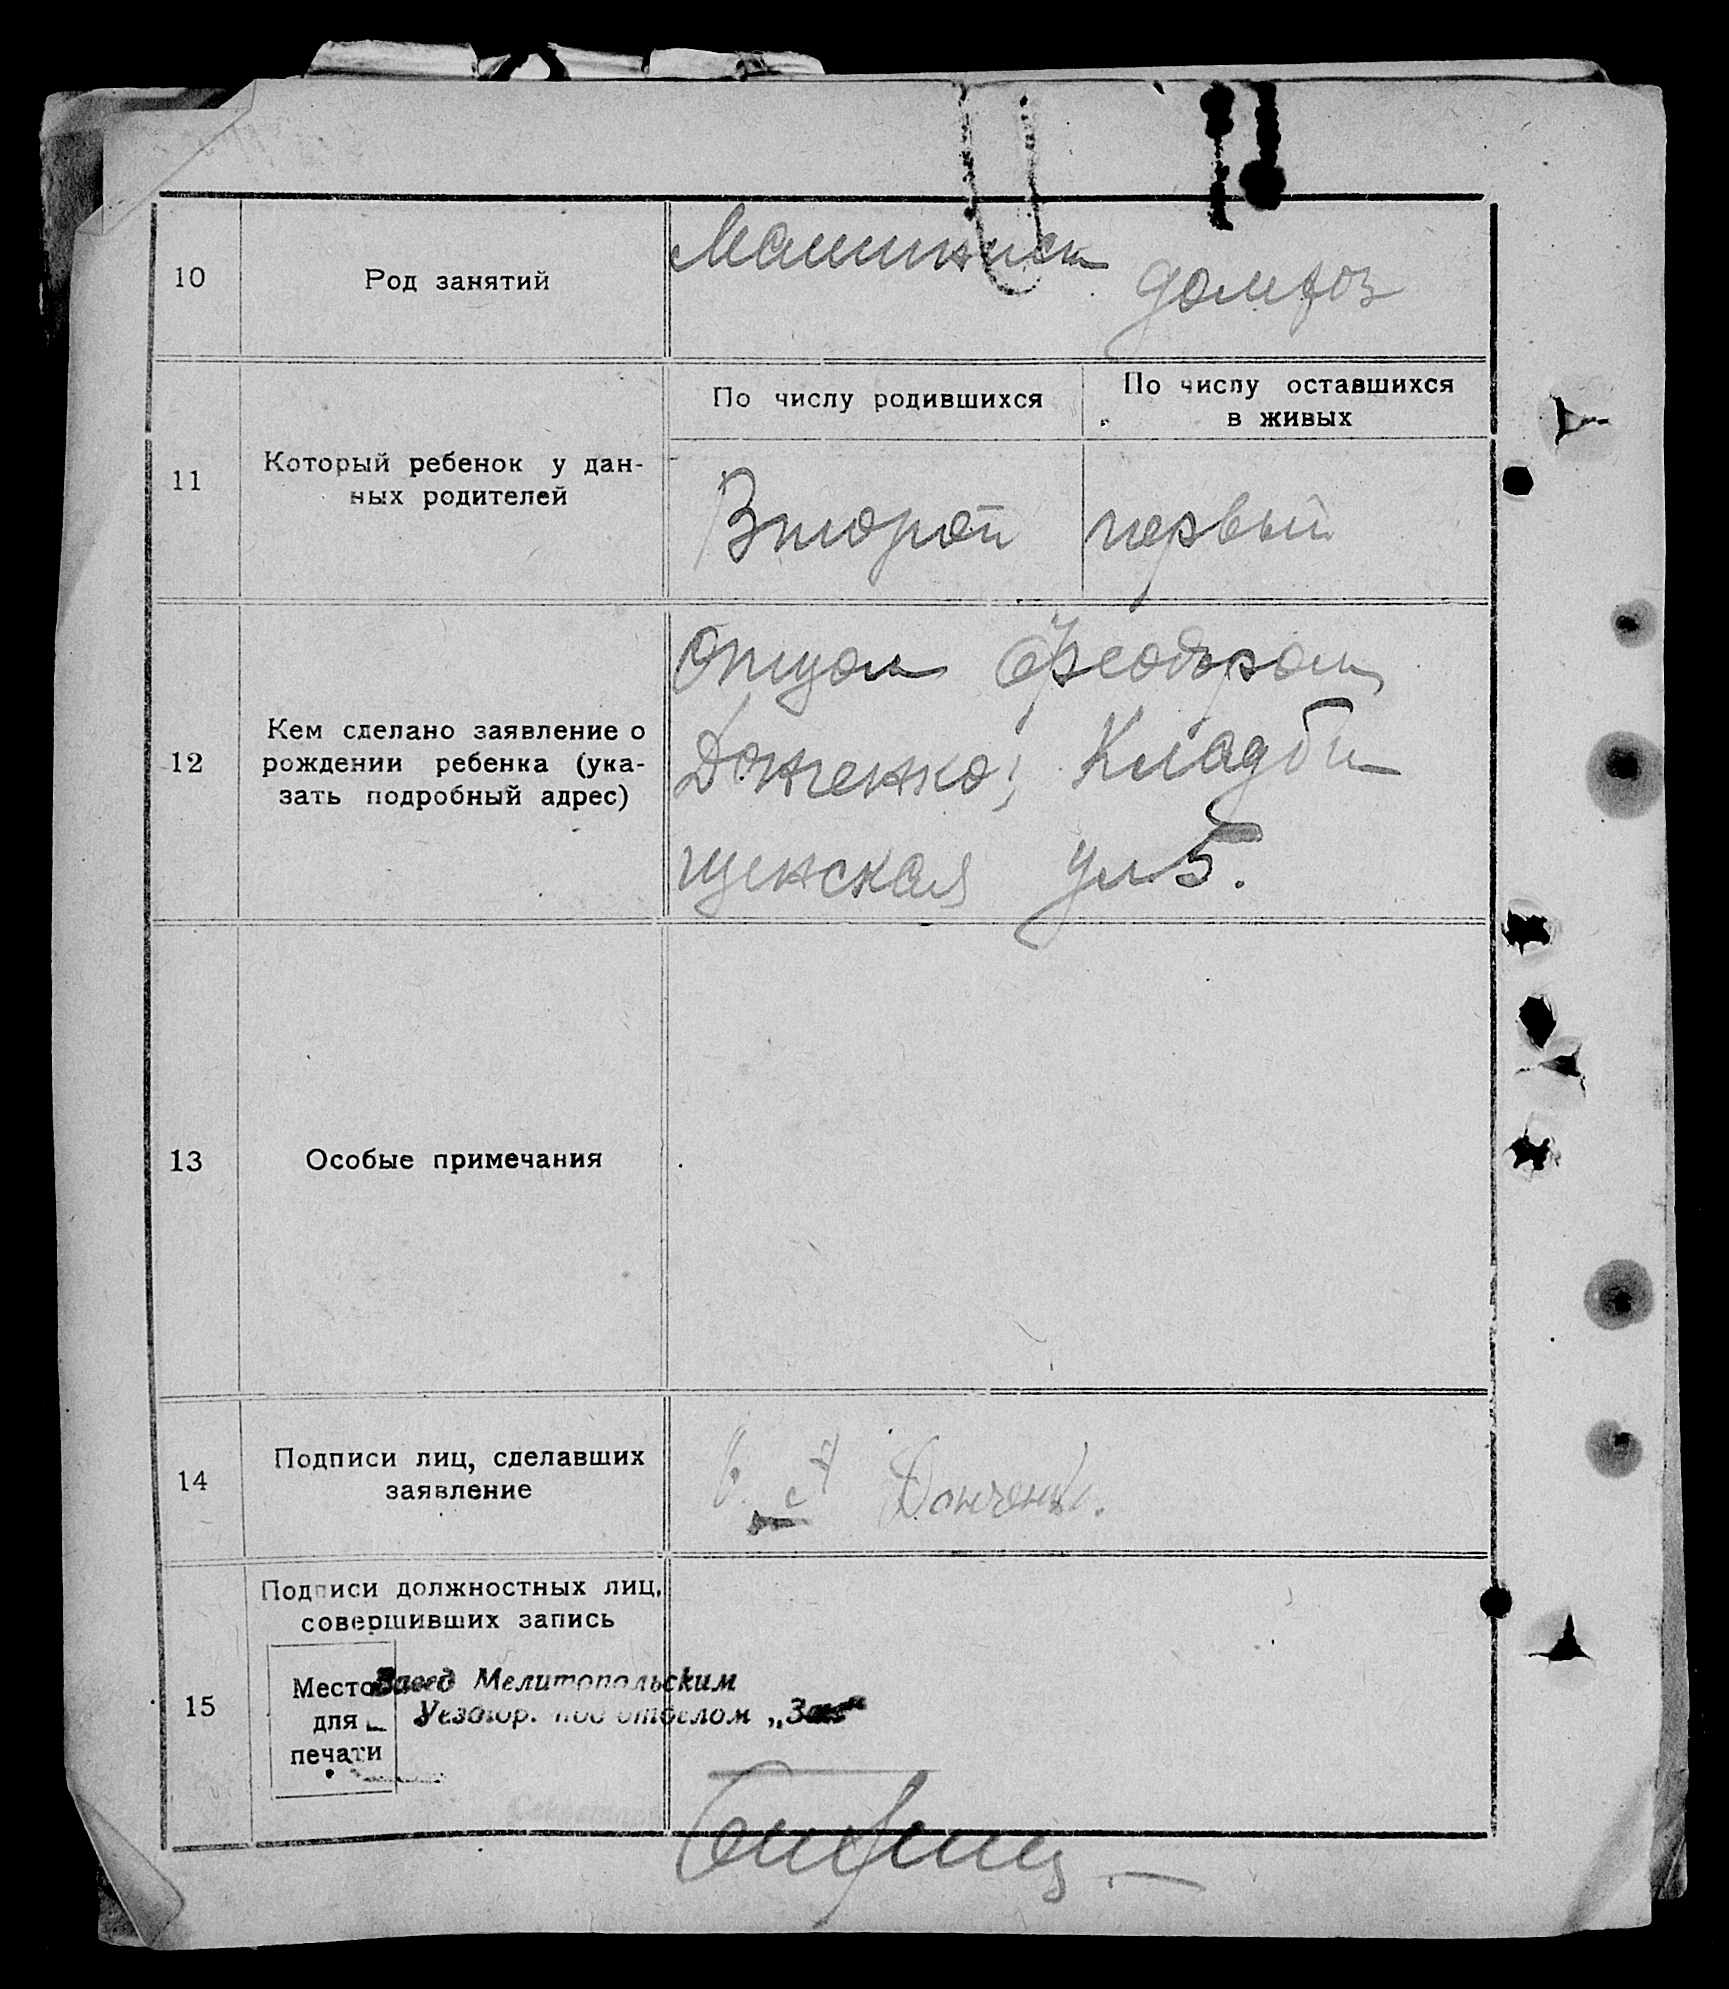 10
Род занятий
Машинист
домхоз
11
Который ребенок у дан-
ных родителей
По числу родившихся
По числу оставшихся
в живых
Второй
первый
12
Кем сделано заявление о
рождении ребенка (ука-
зать подробный адрес)
Отцом Феодором
Донченко; Кладби
щенская ул 5.
13
Особые примечания
14
Подписи лиц, сделавших
заявление
Донченко.
15
Подписи должностных лиц,
совершивших запись
Место
для
печати
Завед Мелитопольским
Уезdгор. под отделом „Загс“